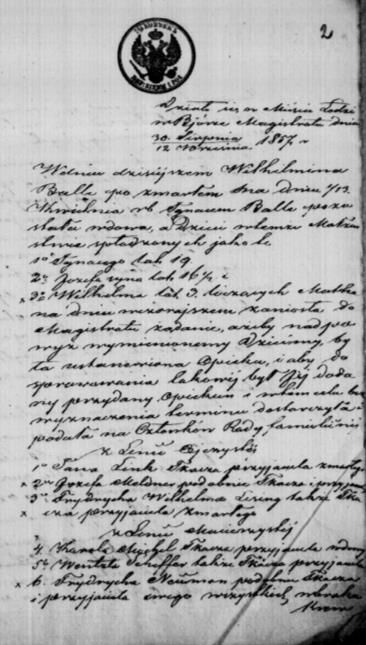 2
Działo się w Mieście Łodzi
w Biórze Magistratu dnia
30 Sierpnia
12 Września 1857 r
W dniu dzisiejszem Wilhelmina
Balle po zmarłem dnia 1/13
Kwietnia rb Ignacem Balle pozo
stała wdowa, a Dzieci w temże Małżeń
stwie spłodzonych jako to
1o Ignacego lat 19.
2o Józefa syna lat 16½ i
x 3o Wilhelma lat 3. liczących Matka
na dniu wczorajszem zaniosła do
Magistratu żądanie, ażeby nad po
wyż wymienionemi Dziećmi, by
ła ustanowiona Opieka, i aby do
sprawowania takowej był Jej doda
ny przydany Opiekun i w tem celu
wyznaczenia terminu dostarczyła
podała na Członków Rady familijnej
z Linii Ojczystej
1o Jana Link Tkacza przyjaciela zmarłego
x 2o Józefa Meldner podobnie Tkacza i przyjaciela
3o Frydrycha Wilhelma Lising także Tka
x cza przyjaciela zmarłego
z Linii Macierzystej
4. Karola Tkacza przyjaciela wdowy
5o Scheffler także Tkacza przyjaciela
x 6. Frydrycha Neuman podobnie Tkacza
i przyjaciela swego wszystkich, w braku
Krew